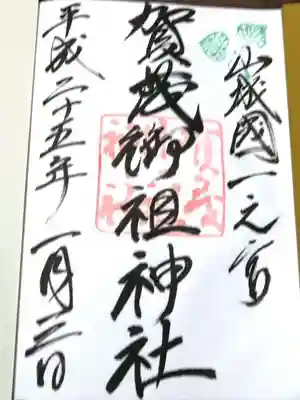 山城國一之宮
賀茂御祖神社
平成二十五年 一月三日